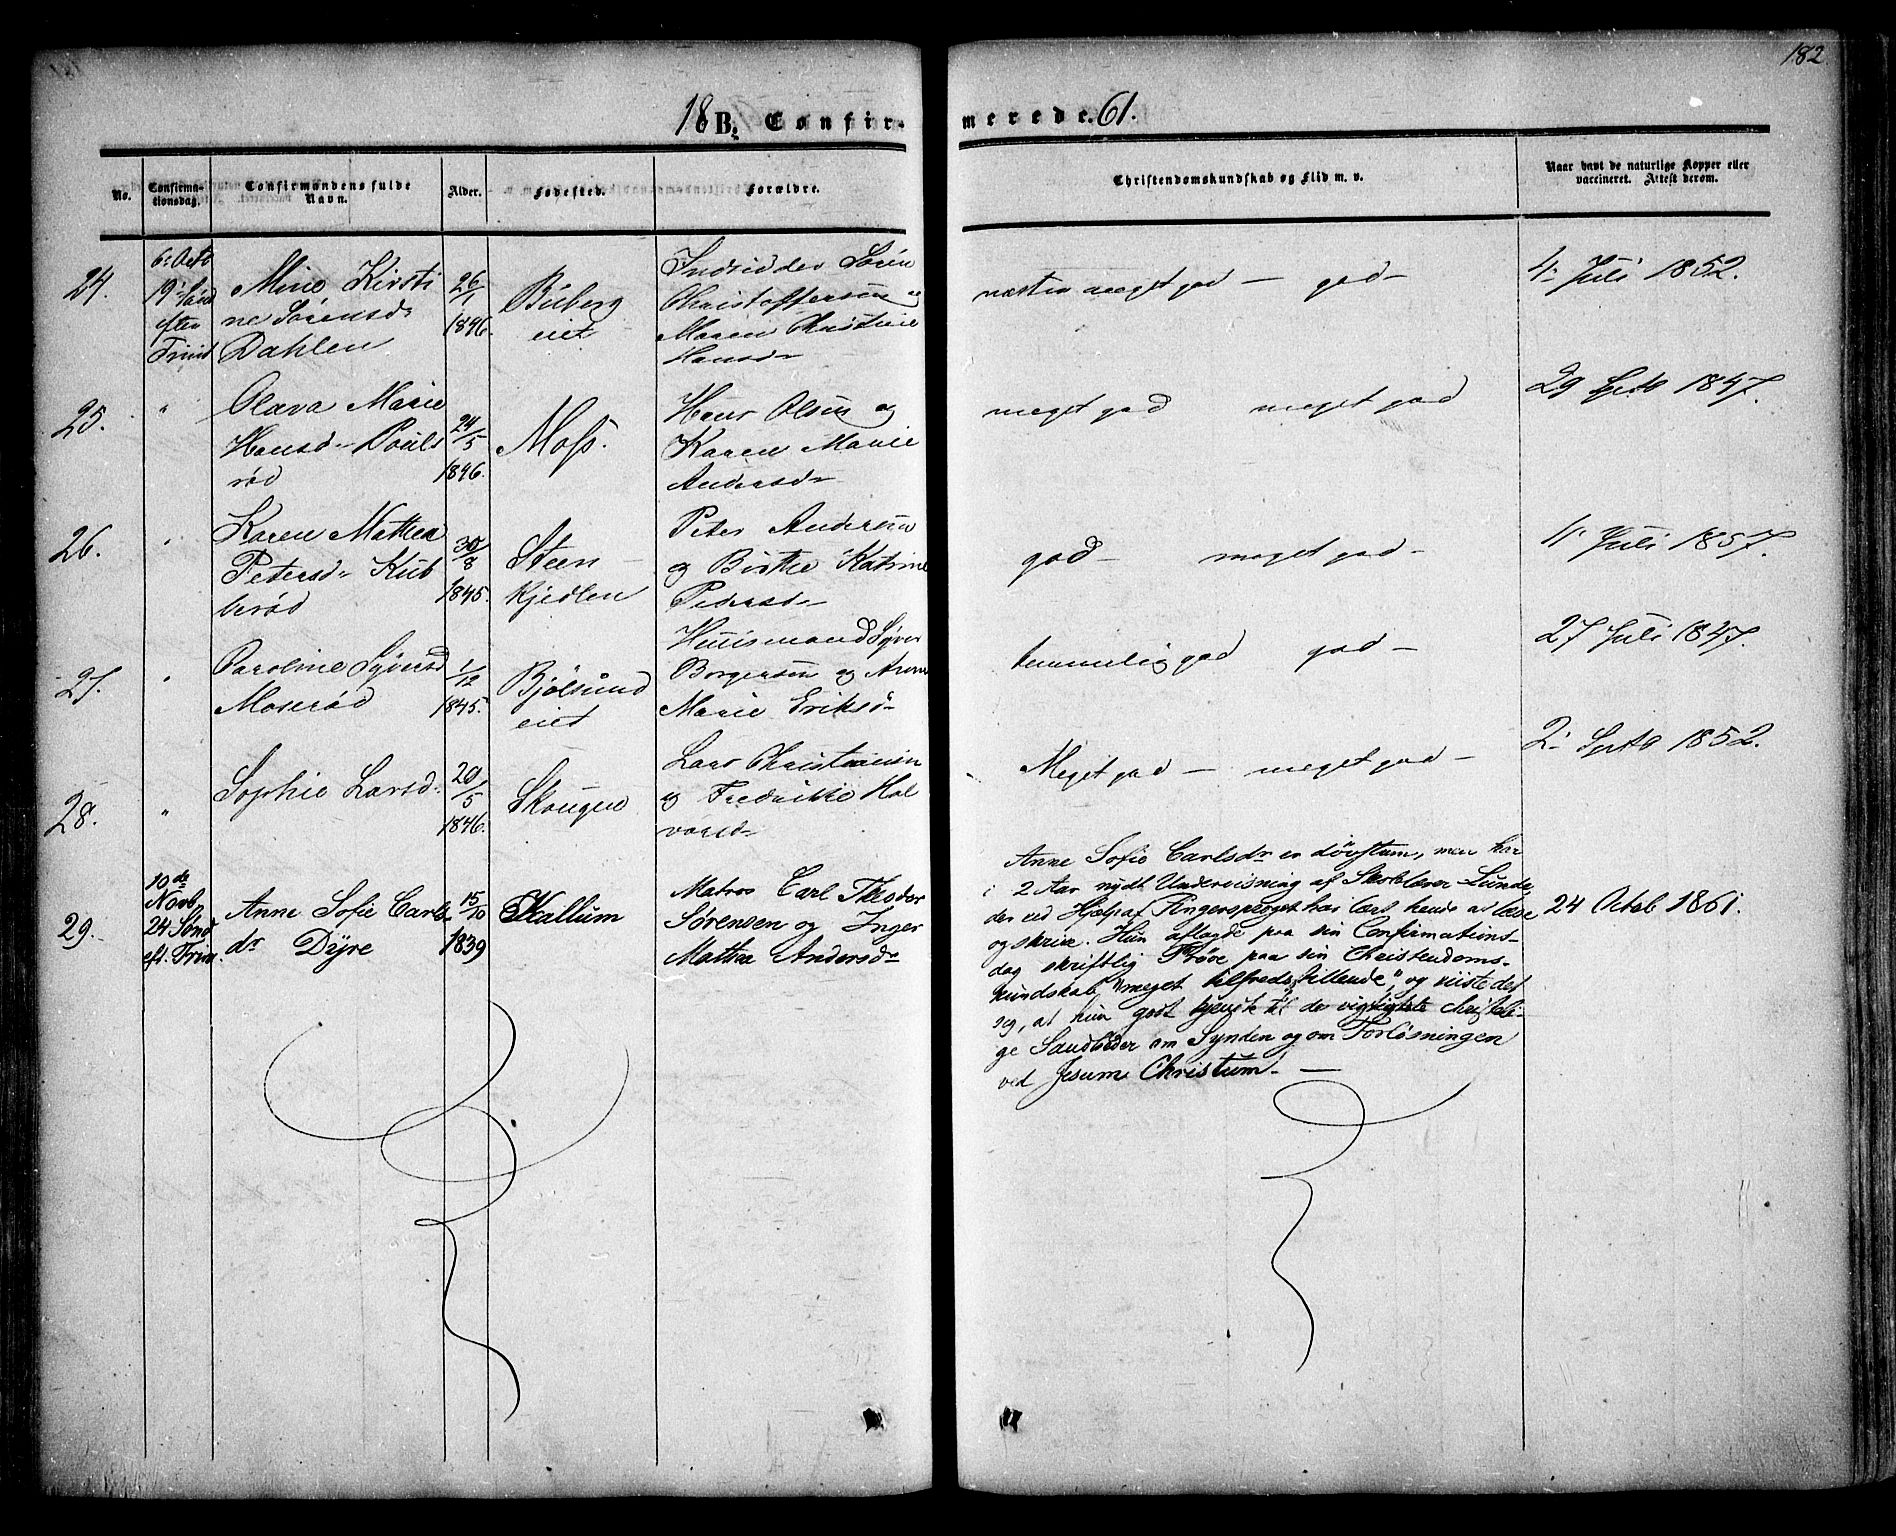 182
18 B. Confirmerede. 61.
No. Confirmationsdag. Confirmandens fulde Navn. Alder. Fødested. Forældre. Christendomskundskab og Flid m. v. Naar havt de naturlige Kopper eller vaccineret. Attest derom.
24.
6: Octb
19 Sønd
efter
Trinit
Mine Kirsti
ne Sørensd
Dahlen
26/1
1846.
Buberg
eiet
Søren
Christoffersen og
Maren Christine
Hansd
næsten meget god — god —
4: Juli 1852.
25.
"
Olava Marie
Hansd Pouls
rød
24/5
1846.
Moss.
Hans Olsen og
Karen Marie
Andersd
meget god meget god
29 Septb 1847.
26.
"
Karen Mathea
Petersd Kub
berød
30/8
1845.
Steen
kjedlen
Peter Andersen
og Birthe Katrine
Pedersd
god — meget god —
4 Juli 1857.
27.
"
Caroline Syversd
Moserød
1/12
1845.
Bjølsund
eiet
Huusmand Syver
Borgersen og Anne
Marie Eriksd
temmelig god god —
27 Juli 1847.
28.
"
Sophie Larsd
29/5
1846.
Skougen
Lars Christiansen
og Fredrikke Hal
vorsd
Meget god — meget god —
2: Septb 1852.
29.
10de
Novb,
24 Sønd
eft. Trin.
Anne Sofie Carls
dr Dyre
15/10
1839
Kallum
Matros Carl Theodor
Sørensen og Inger
Mathea Andersdr
Anne Sofie Carlsdr er døvstum, men har
i 2 Aar nydt Undervisning af Skolelærer Lunde,
der ved Hjælp af Fingersproget har lært hende at læse
og skrive. Hun aflagde paa sin Confirmations-
dag skriftlig Prøve paa sin Christendoms-
kundskab, "meget tilfredsstillende", og viiste det
sig, at hun godt kjendte til de vigtigste christeli-
ge Sandheder om Synden og om Forløsningen
ved Jesum Christum. —
24 Octob 1861.